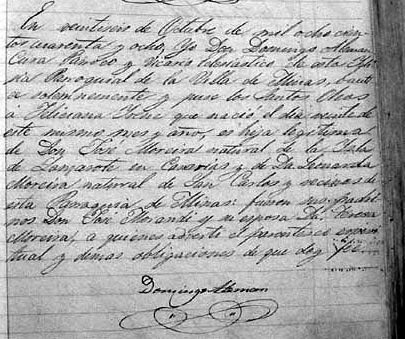 En veintiseis de Octubre de mil ochocien
tos cuarenta y ocho, Yo Don Domingo Aleman
Cura Parroco y Vicario Eclesiastico de esta Igle
sia Parroquial de la Villa de Minas, bauti
ce solemnemente y puse los Santos Oleos
á Feliciana Irene que nació el dia veinte de
este mismo mes y año, es hija legitima
de Don José Moreira natural de la Isla
de Lanzarote en Canarias y de Da.
Moreira natural de San Carlos y vecinos de
esta Parroquia de Minas: fueron sus padri
nos Don José Morandi y su esposa Da. Teresa
Moreira, a quienes advertí el parentesco espiri
tual y demas obligaciones de que doy fee
Domingo Aleman